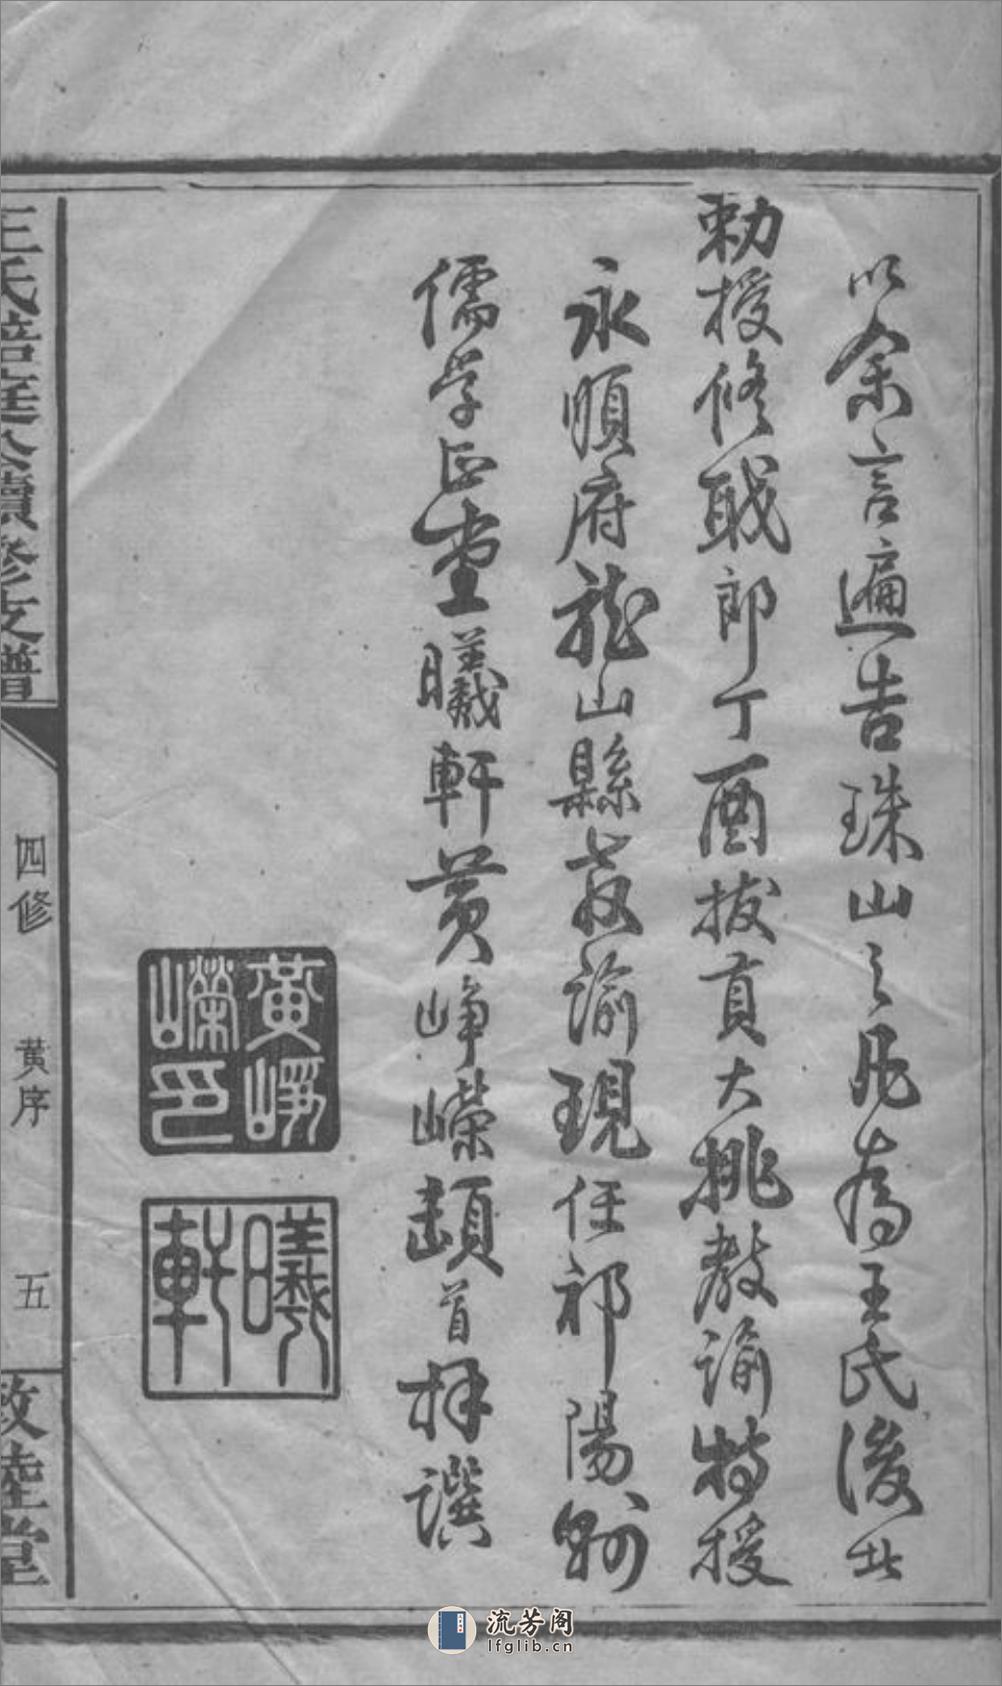 以余言遍告珠山之凡為王氏後者
勅授修職郎丁酉拔貢大挑教諭特授
永順府龍山縣教諭現任祁陽縣
儒学正堂曦軒黄崢嶸頓首拜譔
黃崢嶸印
曦軒
王氏 庭公續修支譜
四修
黄序
五
敦睦堂
流芳阁
lfglib.cn